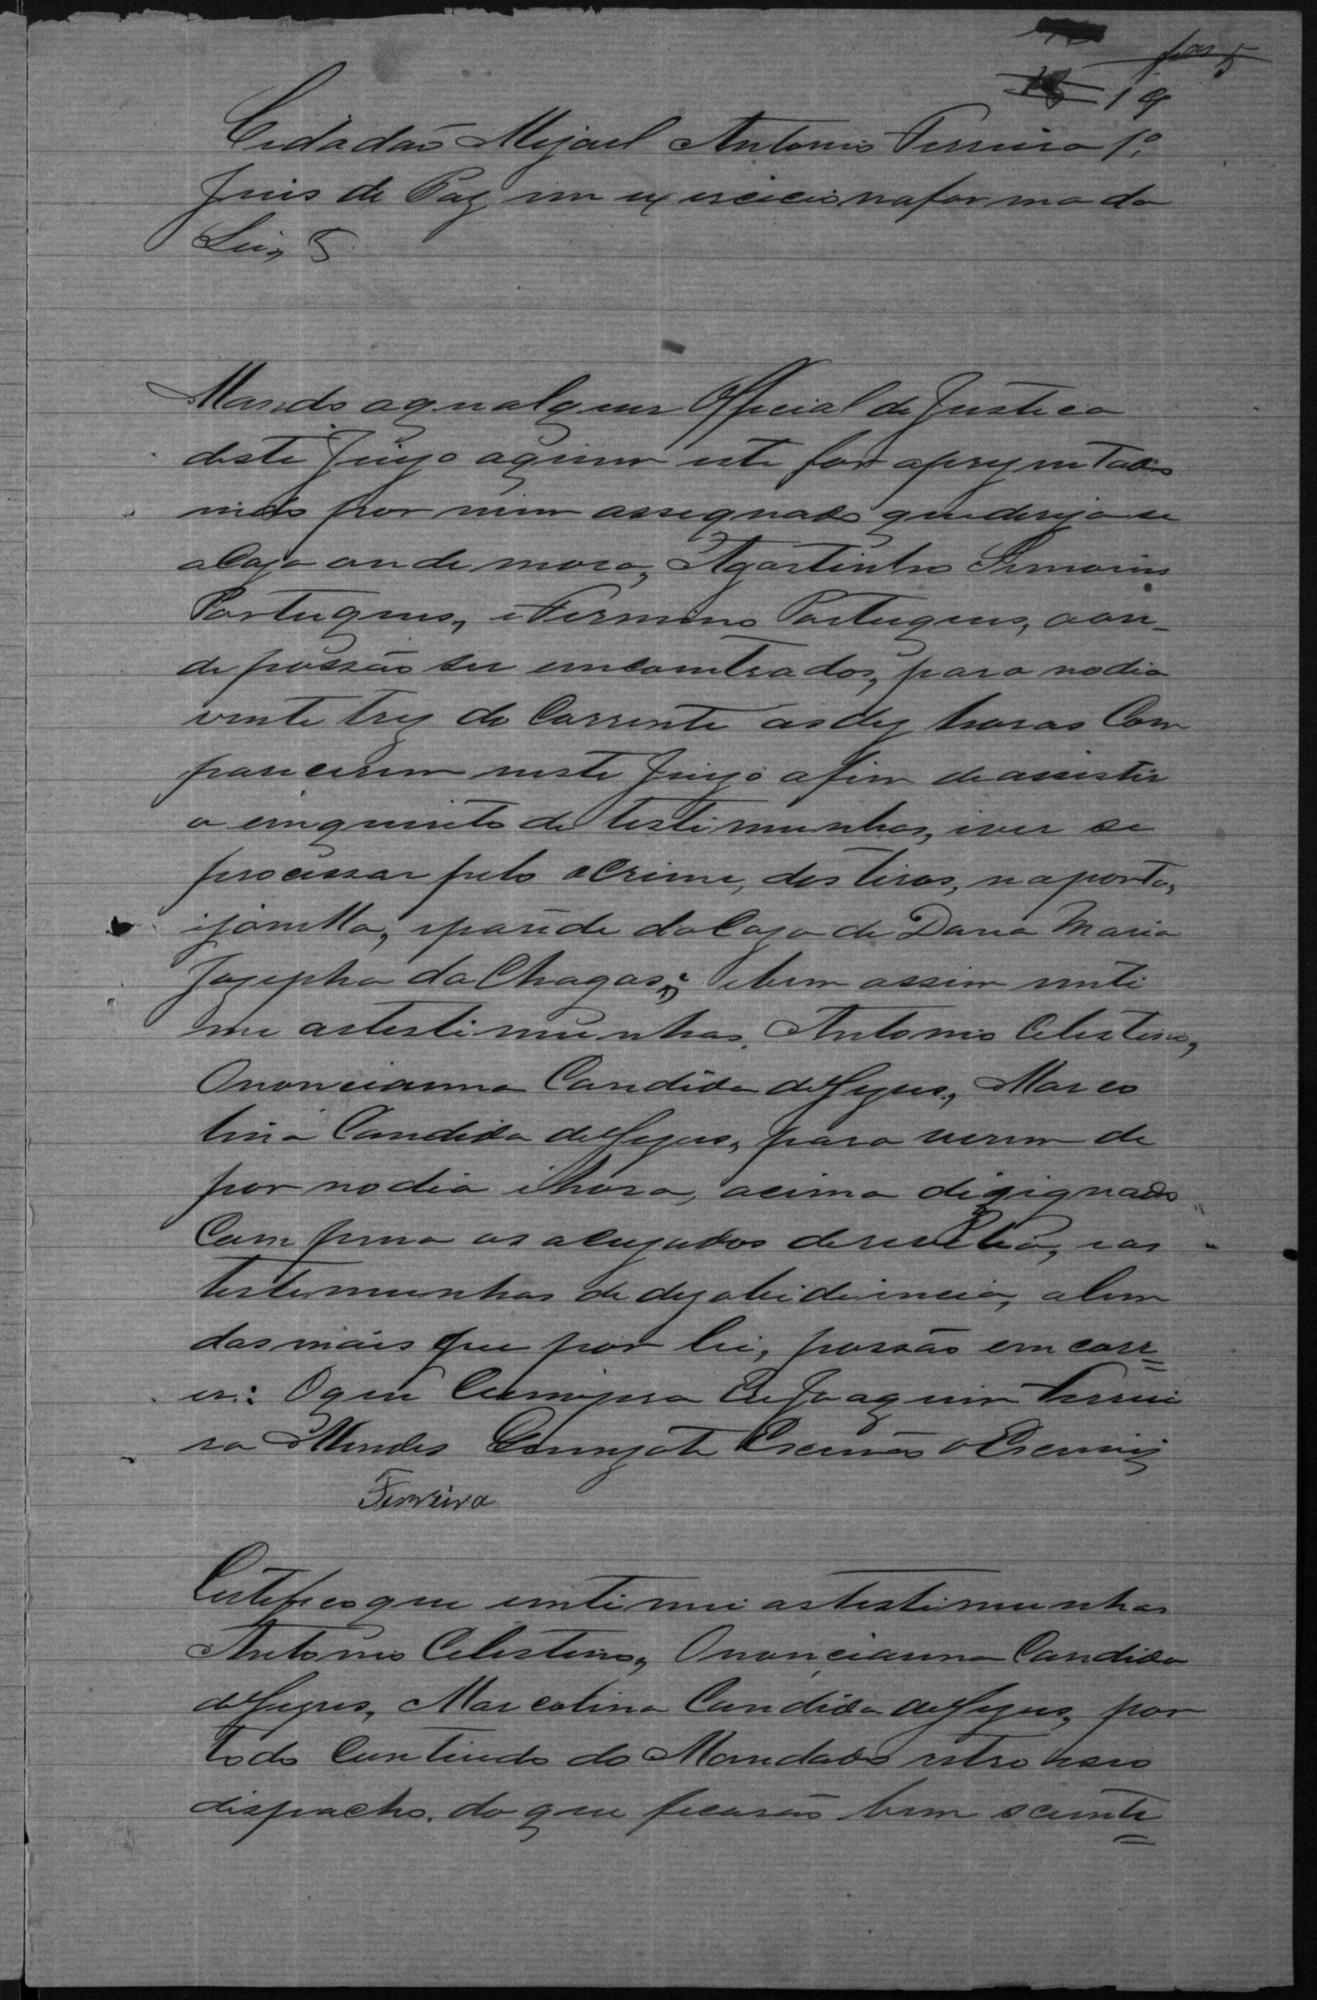 19
Cidadão Migael Antonio Ferreira 1º
Juis de Paz em exercicio na forma da
Lei, &
Mando aqualquer Official de Justica
deste Juizo aquem este for aprezentado
indo por mim assegnado que derija se
a Caza onde mora, Agostinho
Portugues, e Fermino Portugues, aon-
de possão ser emcomtrados, para nodia
vinte trez do Corrente as dez horas Com
parecerem neste Juizo afim de assistir
o emquirito de testimunhas, iver se
processar pelo o Crime, dos tiros, na porta,
ijanella, iparede da Caza de Dona Maria
Jozepha da Chagas; ebem assim inti
me as testimunhas. Antonio Celestino,
Ononcianna Candida de Jezus, Marco
lina Candida de Jezus, para virem de
por no dia i hora, acima dizignado
Com pena os acuzados de revelia, i as
testemunhas de dezobidiencia, alem
das mais que por lei, possão em corr=
er: O que Cumpra Eu Joaquim Ferrei
ra Mendes Escrivão o Escrevi
Ferreira
Certefico que intimei as testimunhas
Antonio Celestino, Ononcianna Candida
de Jezus, Marcolina Candida de Jezus, por
todo Contiudo do Mandado retro
dispacho. do que ficarão bem sciente=